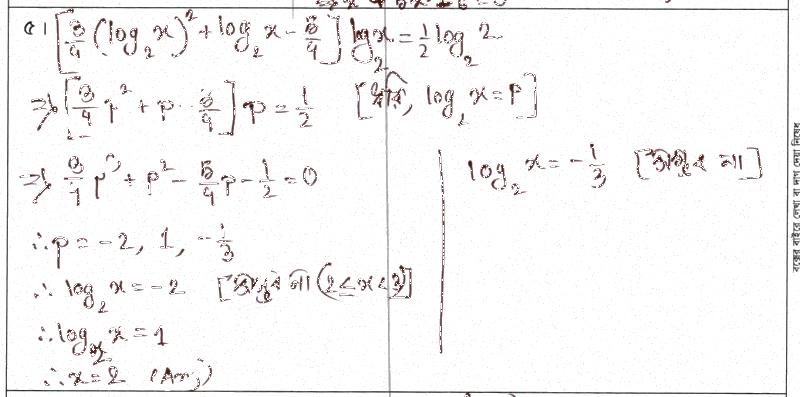 ৫। [3/4 (log₂x)² + log₂x - 5/4] log₂x = 1/2 log₂2
⇒ [3/4 p² + p - 5/4] p = 1/2 [ধরি, log₂x = p]
⇒ 3/4 p³ + p² - 5/4 p - 1/2 = 0
∴ p = -2, 1, -1/3
∴ log₂x = -2 [সম্ভব না
∴ log₂x = 1
∴ x = 2 (Ans)
log₂x = -1/3 [সম্ভব না]
বক্সের বাইরে লেখা বা দাগ দেয়া নিষেধ